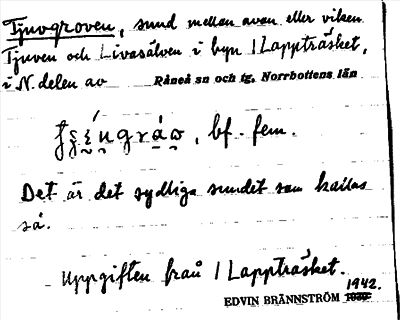 Tjuvgroven, sund mellan avan eller viken
Tjuven och Livasälven i byn / Lappträsket,
i N. delen av Råneå sn och tg, Norrbottens län
, bf. fem.
Det är det sydliga sundet som kallas
så.
Uppgiften från / Lappträsket.
1942.
EDVIN BRÄNNSTRÖM 1939